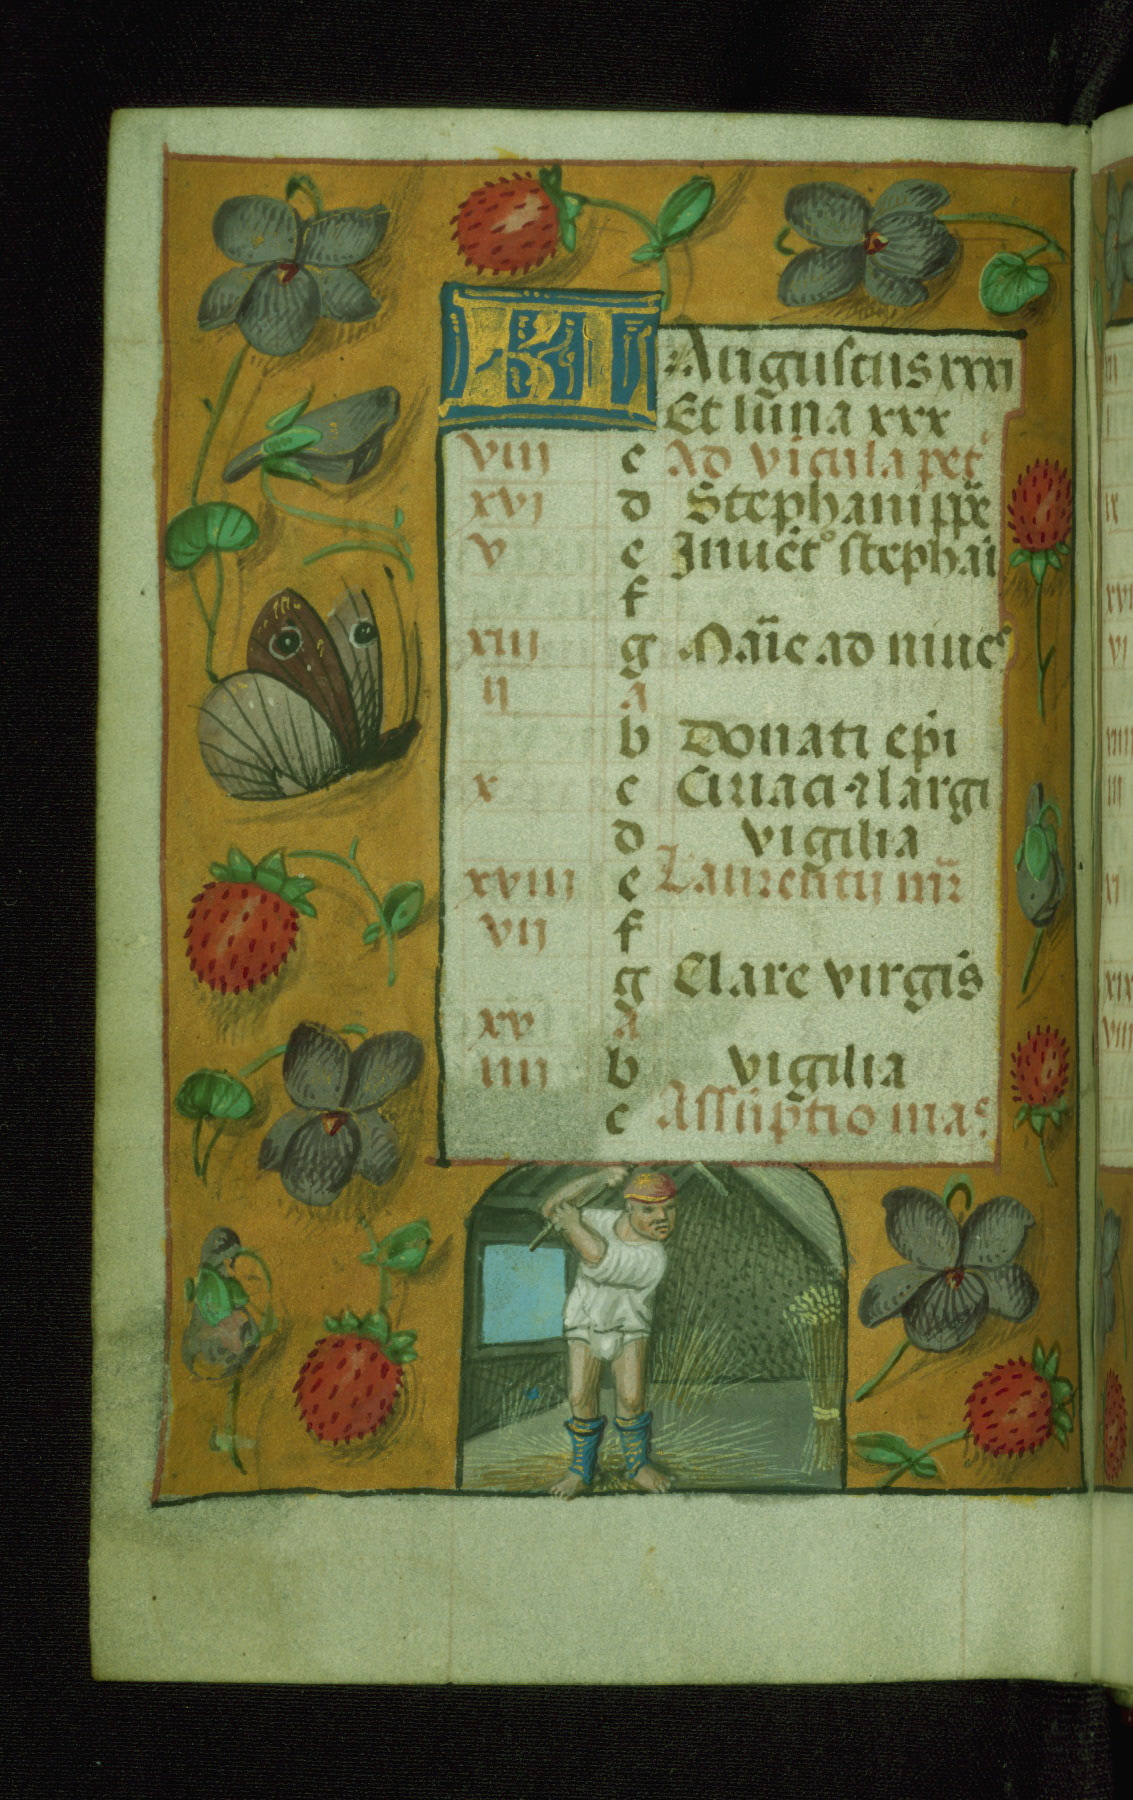 KL Augustus xxxi
Et luna xxx
viii c Ad vicula pet
xvi d Stephani ppe
v e Inuet stephai
f
xiii g Marie ad niues
ii a
b Donati epi
x c Ciriaci 7 largi
d vigilia
xviii e Laurentij mr
vii f
g Clare virgis
xv a
iiii b vigilia
c Assuptio mar